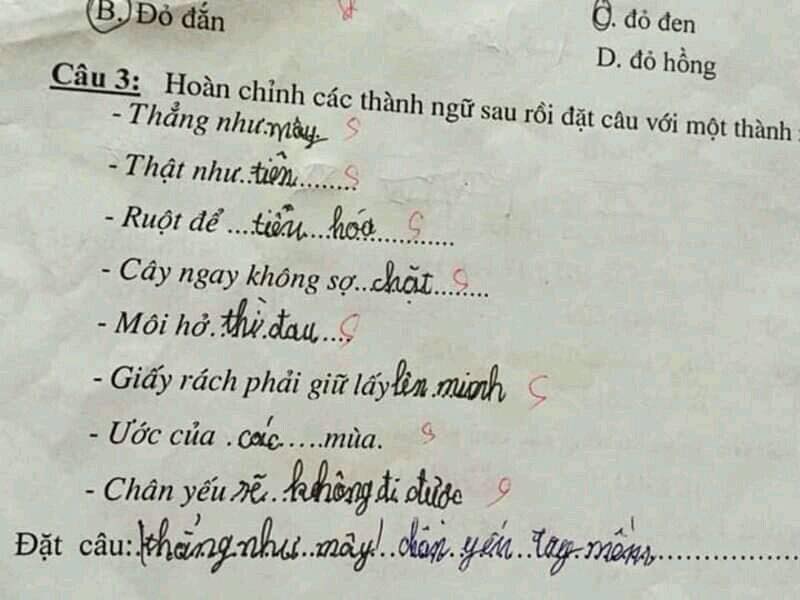 B. Đỏ đắn
C. đỏ đen
D. đỏ hồng
Câu 3: Hoàn chỉnh các thành ngữ sau rồi đặt câu với một thành
- Thẳng như mày S
- Thật như..tiên........ S
- Ruột để ....tiêu...hóa............ S
- Cây ngay không sợ..chặt........ S
- Môi hở.thì.đau.... S
- Giấy rách phải giữ lấy lên minh S
- Ước của .các....mùa. S
- Chân yếu sẽ..không đi được S
Đặt câu: thẳng.như..mày!..chân.yếu..tay.mềm...............